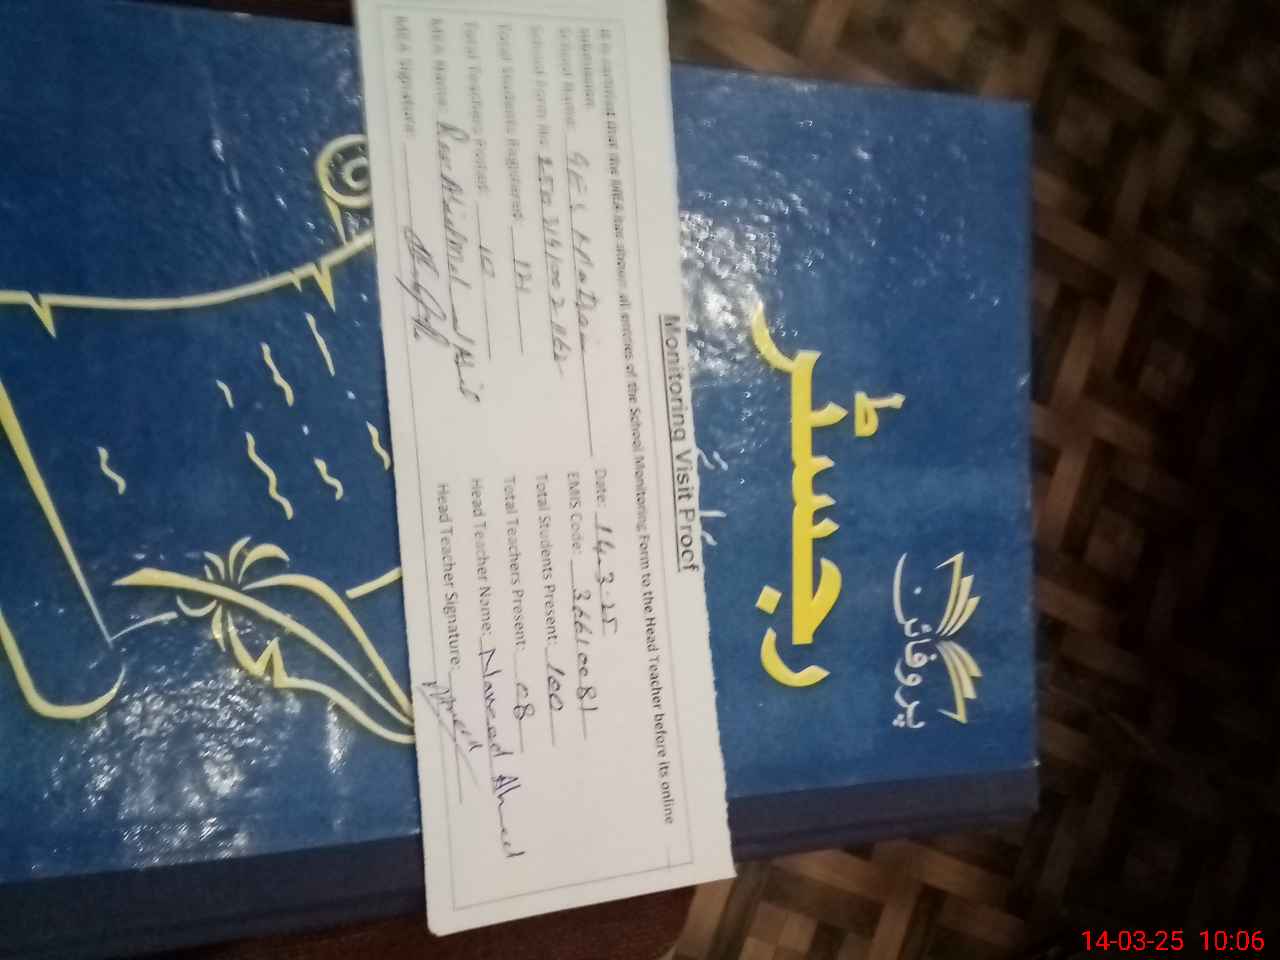 Monitoring Visit Proof
It is certified that the MEA has shown all entries of the School Monitoring Form to the Head Teacher before its online
submission.
School Name: Date: 14-3-25
School Form No: EMIS Code: 36610081
Total Students Registered: 121 Total Students Present: 100
Total Teachers Posted: 10 Total Teachers Present: 08
MEA Name: Head Teacher Name: Naveed Ahmed
MEA Signature: Head Teacher Signature:
پروفائن
رجسٹر
14-03-25 10:06